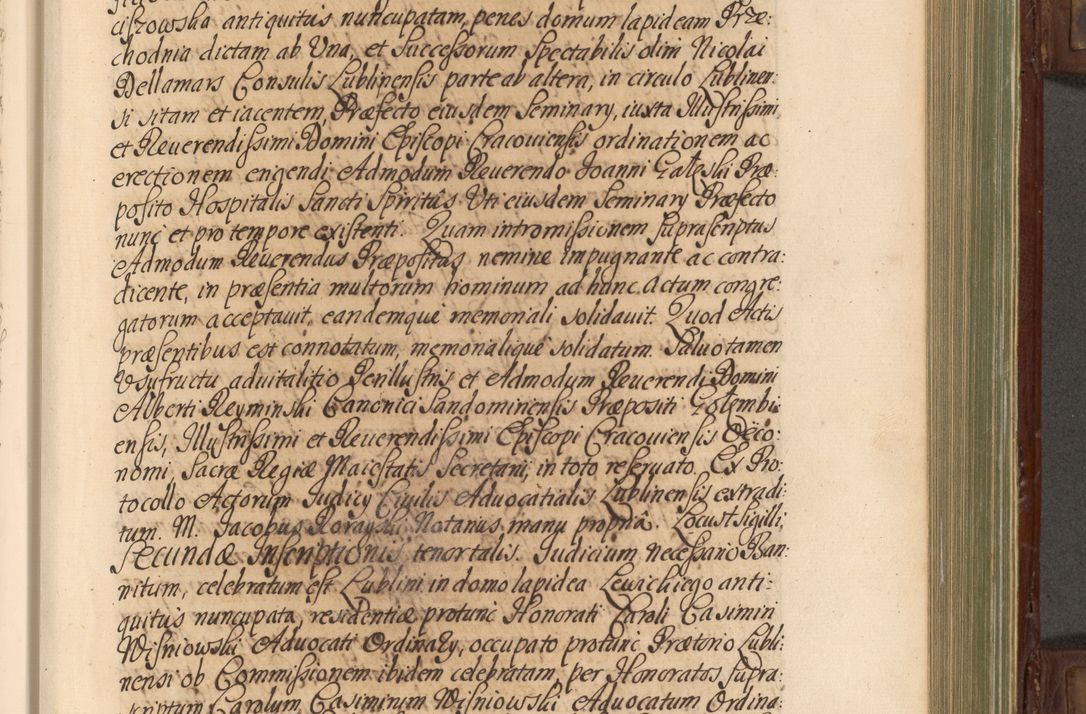 ciszowska antiquitus nuncupatam, penes domum lapideam Prze:
chodnia dictam ab Una, et Successorum Spectabilis olim Nicolai
Dellamars Consulis Lublinensis parte ab altera, in circulo Lubliner:
si sitam et iacentem, Præfecto eiusdem Seminary, iuxta Illustrissimi
et Reuerendissimi Domini Episcopi Cracouiensis ordinationem ac
erectionem engendi Admodum Reuerendo Joanni Gałęski Præ:
posito Hospitalis Sancti Spiritus Uti eiusdem Seminary Præfecto
nunc et pro tempore existenti. Quam intromissionem suprascriptus
Admodum Reuerendus Præpositus nemine impugnante ac contra:
dicente, in præsentia multorum hominum ad hunc actum congre:
gatorum acceptauit, eandemque memoriali solidauit. Quod Actis
præsentibus est connotatum, memorialique solidatum. Saluo tamen
Usufructu aduitalitio Perillustris et Admodum Reuerendi Domini
Alberti Reyminski Canonici Sandominensis Præpositi Gołembi:
ensis, Illustrissimi et Reuerendissimi Episcopi Cracouiensis Oeco:
nomi, Sacræ Regiæ Maiestatis Secretarii, in toto reseruato. Ex Pro:
tocollo Actorum Judicy Ciuilis Aduocatialis Lublinensis extradi:
tum. M. Jacobus Korayski Notarius manu propria. Locust Sigilli,
Secundæ Inscriptionis tenor talis. Judicium necessario Ban:
nitum, celebratum est Lublini in domo lapidea Lewickiego anti:
quitus nuncupata, residentiæ protunc Honorati Caroli Casimiri
Wisniowski Aduocati Ordinary, occupato protunc Prætorio Lubli:
nensi ob Commissionem ibidem celebratam, per Honoratos supra:
scriptum Carolum Casimirum Wisniowski Aduocatum Ordina: